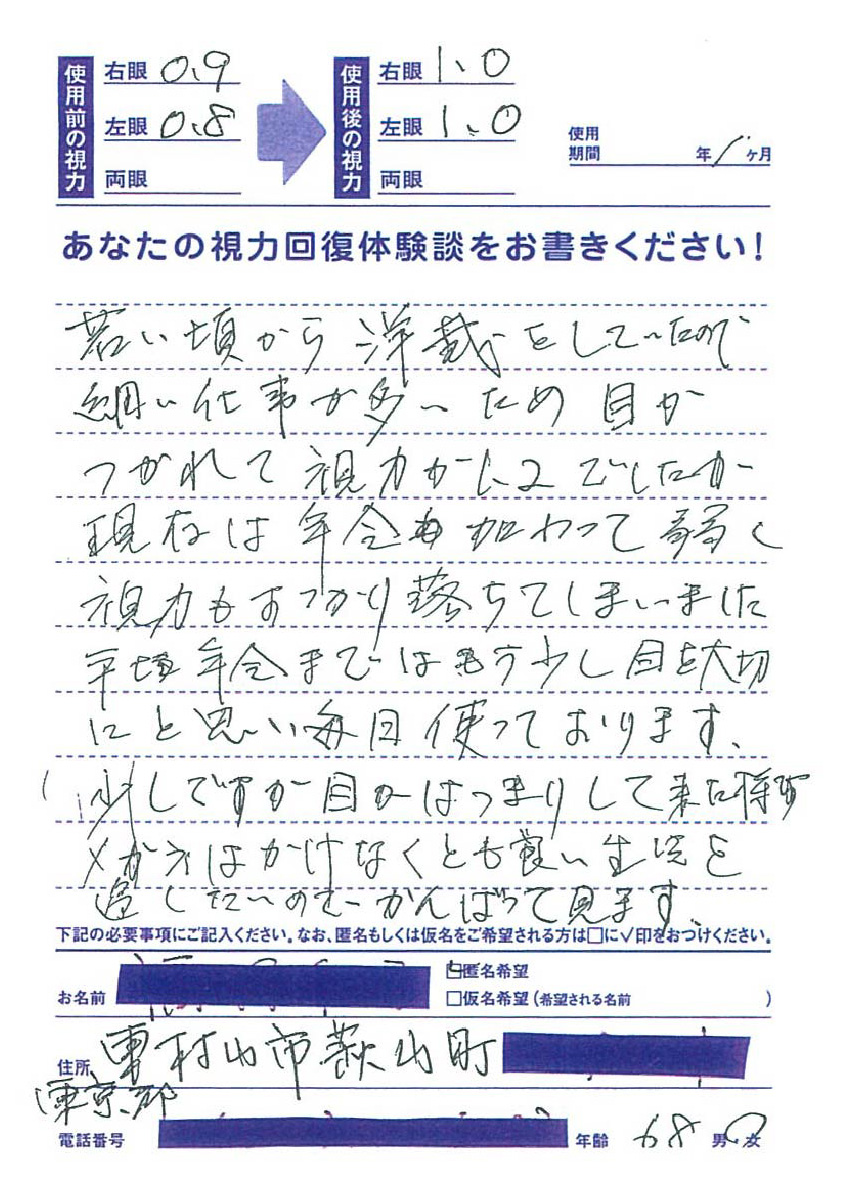 使用前の視力
右眼 0.9
左眼 0.8
両眼
使用後の視力
右眼 1.0
左眼 1.0
両眼
使用期間 年 1ヶ月
あなたの視力回復体験談をお書きください!
若い頃から洋裁をしていたので
細い仕事が多いため目が
つがれて視力が1.2でしたが
現在は年令も加わって弱く
視力もすっかり落ちてしまいました
平均年令まではもう少し目を大切
にと思い毎日使っております、
少しですが目がはっきりして来た様す
メガネはかけなくとも良い生活を
過したいのでがんばって見ます、
下記の必要事項にご記入ください。なお、匿名もしくは仮名をご希望される方は□に✓印をおつけください。
お名前
匿名希望
□仮名希望(希望される名前 )
住所 東村山市萩山町
東京都
電話番号
年齢 68 男・女